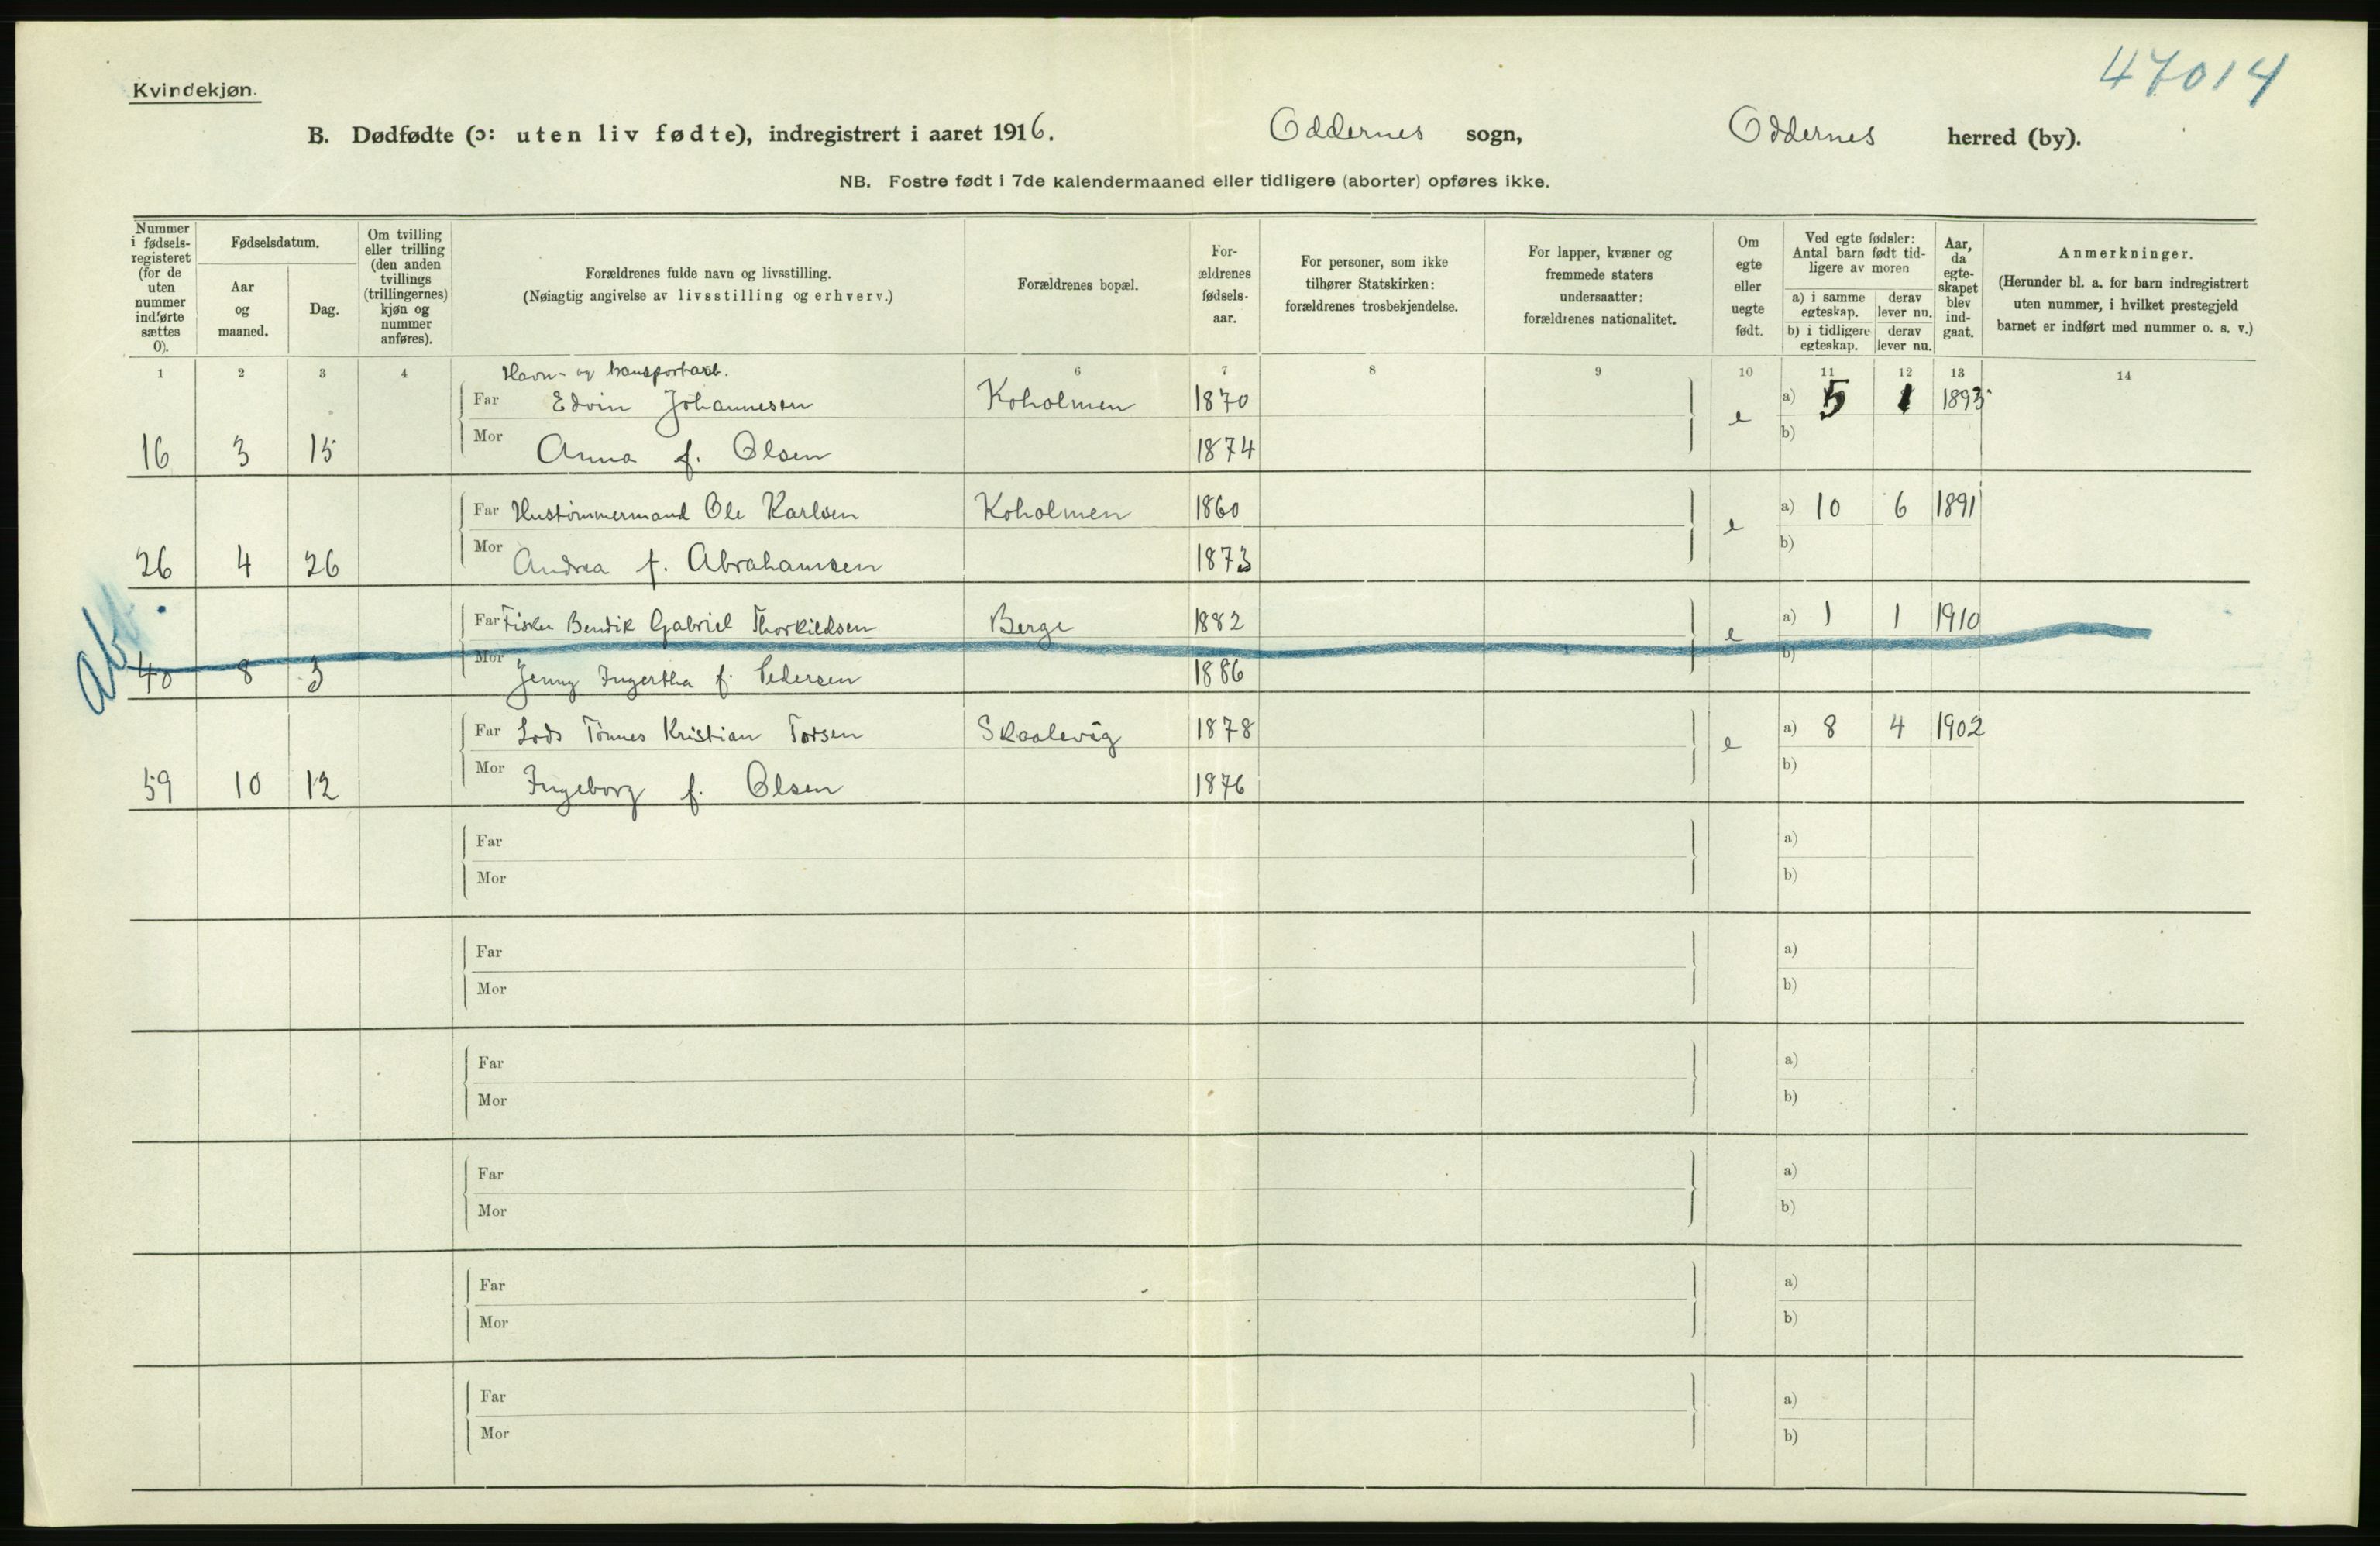 47014
Kvindekjøn.
B. Dødfødte (ɔ: uten liv fødte), indregistrert i aaret 1916. Oddernes sogn, Oddernes herred (by).
NB. Fostre født i 7de kalendermaaned eller tidligere (aborter) opføres ikke.
Nummer i fødsels-registeret (for de uten nummer indførte sættes 0).
Fødselsdatum.
Aar og maaned.
Dag.
Om tvilling eller trilling (den anden tvillings (trillingernes) kjøn og nummer anføres).
Forældrenes fulde navn og livsstilling.
(Nøiagtig angivelse av livsstilling og erhverv.)
Forældrenes bopæl.
For-ældrenes fødsels-aar.
For personer, som ikke tilhører Statskirken: forældrenes trosbekjendelse.
For lapper, kvæner og fremmede staters undersaatter: forældrenes nationalitet.
Om egte eller uegte født.
Ved egte fødsler: Antal barn født tid-ligere av moren
a) i samme egteskap. derav lever nu.
b) i tidligere egteskap. derav lever nu.
Aar, da egte-skapet blev ind-gaat.
Anmerkninger.
(Herunder bl. a. for barn indregistrert uten nummer, i hvilket prestegjeld barnet er indført med nummer o. s. v.)
1 2 3 4 6 7 8 9 10 11 12 13 14
Havn- og transportarb.
Far Edvin Johannessen Koholmen 1870 e a) 5 1 1893
16 3 15 Mor Anna f. Olsen 1874 b)
Far Hustømmermand Ole Karlsen Koholmen 1860 e a) 10 6 1891
26 4 26 Mor Andrea f. Abrahamsen 1873 b)
Far Fisker Bendik Gabriel Thorkildsen Berge 1882 e a) 1 1 1910
40 8 3 Mor Jenny Ingertha f. Pedersen 1886 b)
Far Lods Tønnes Kristian Torsen Skaalevig 1878 e a) 8 4 1902
59 10 12 Mor Ingeborg f. Olsen 1876 b)
Far a)
Mor b)
Far a)
Mor b)
Far a)
Mor b)
Far a)
Mor b)
Far a)
Mor b)
Far a)
Mor b)